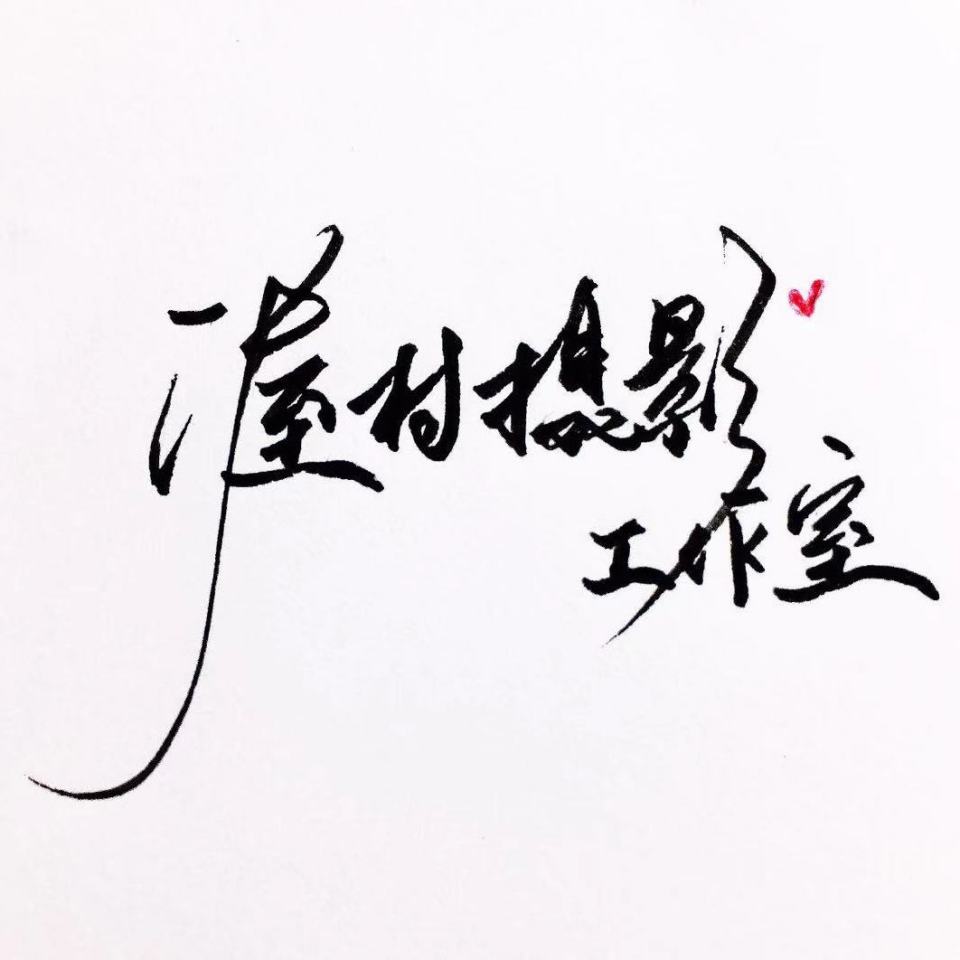 渥村摄影
工作室